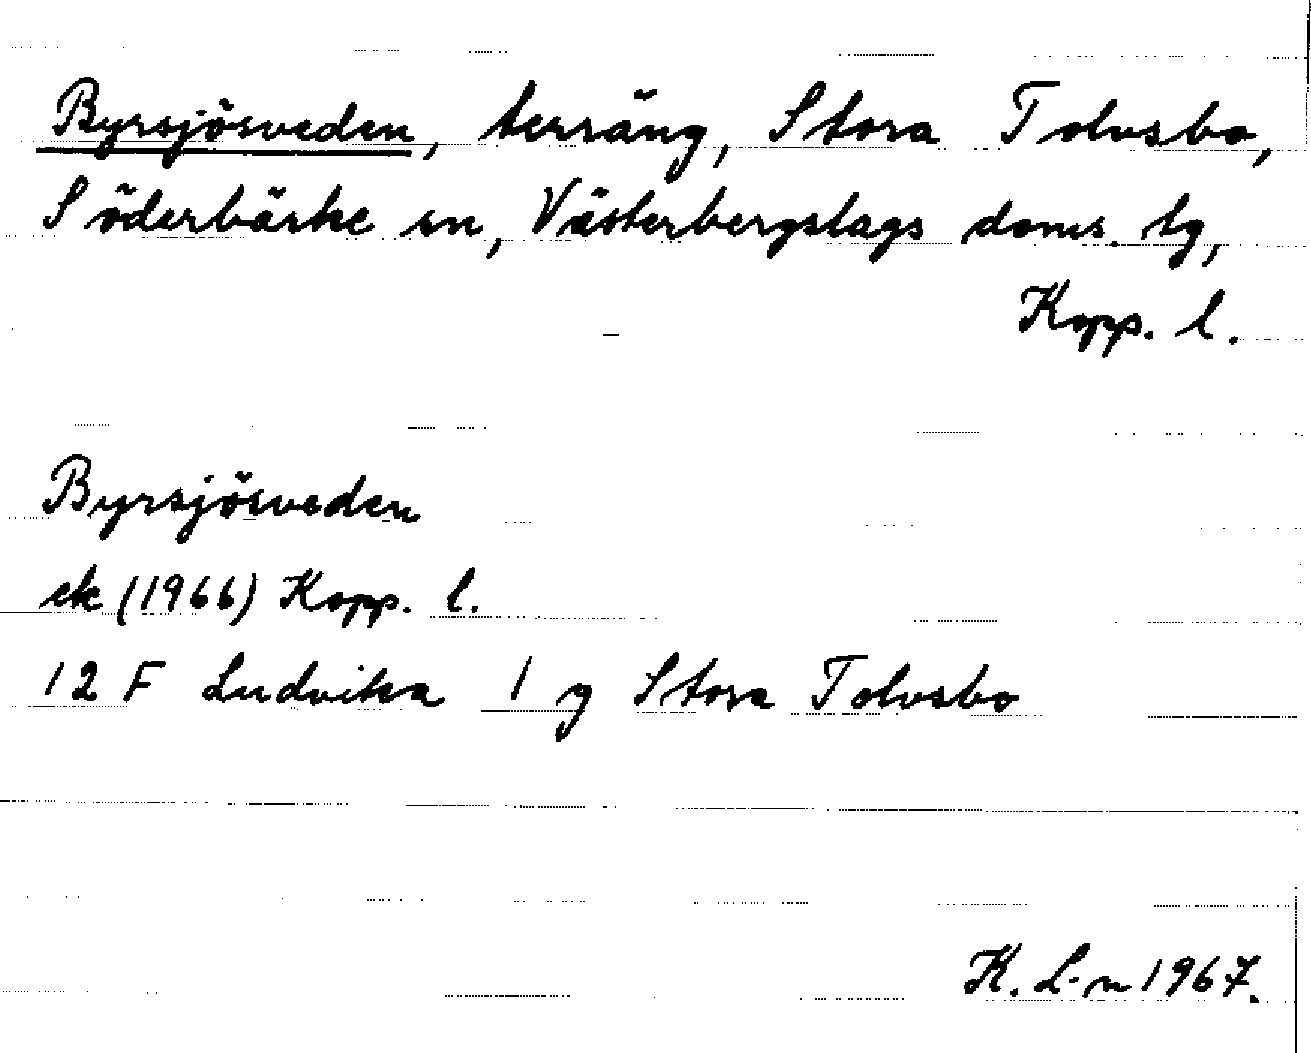 Byrsjösveden, terräng, Stora Tolvsbo,
Söderbärke sn, Västerbergslags doms. tg,
Kopp. l.
Byrsjösveden
ek (1966) Kopp. l.
12 F Ludvika 1 g Stora Tolvsbo
K. L-n 1967.